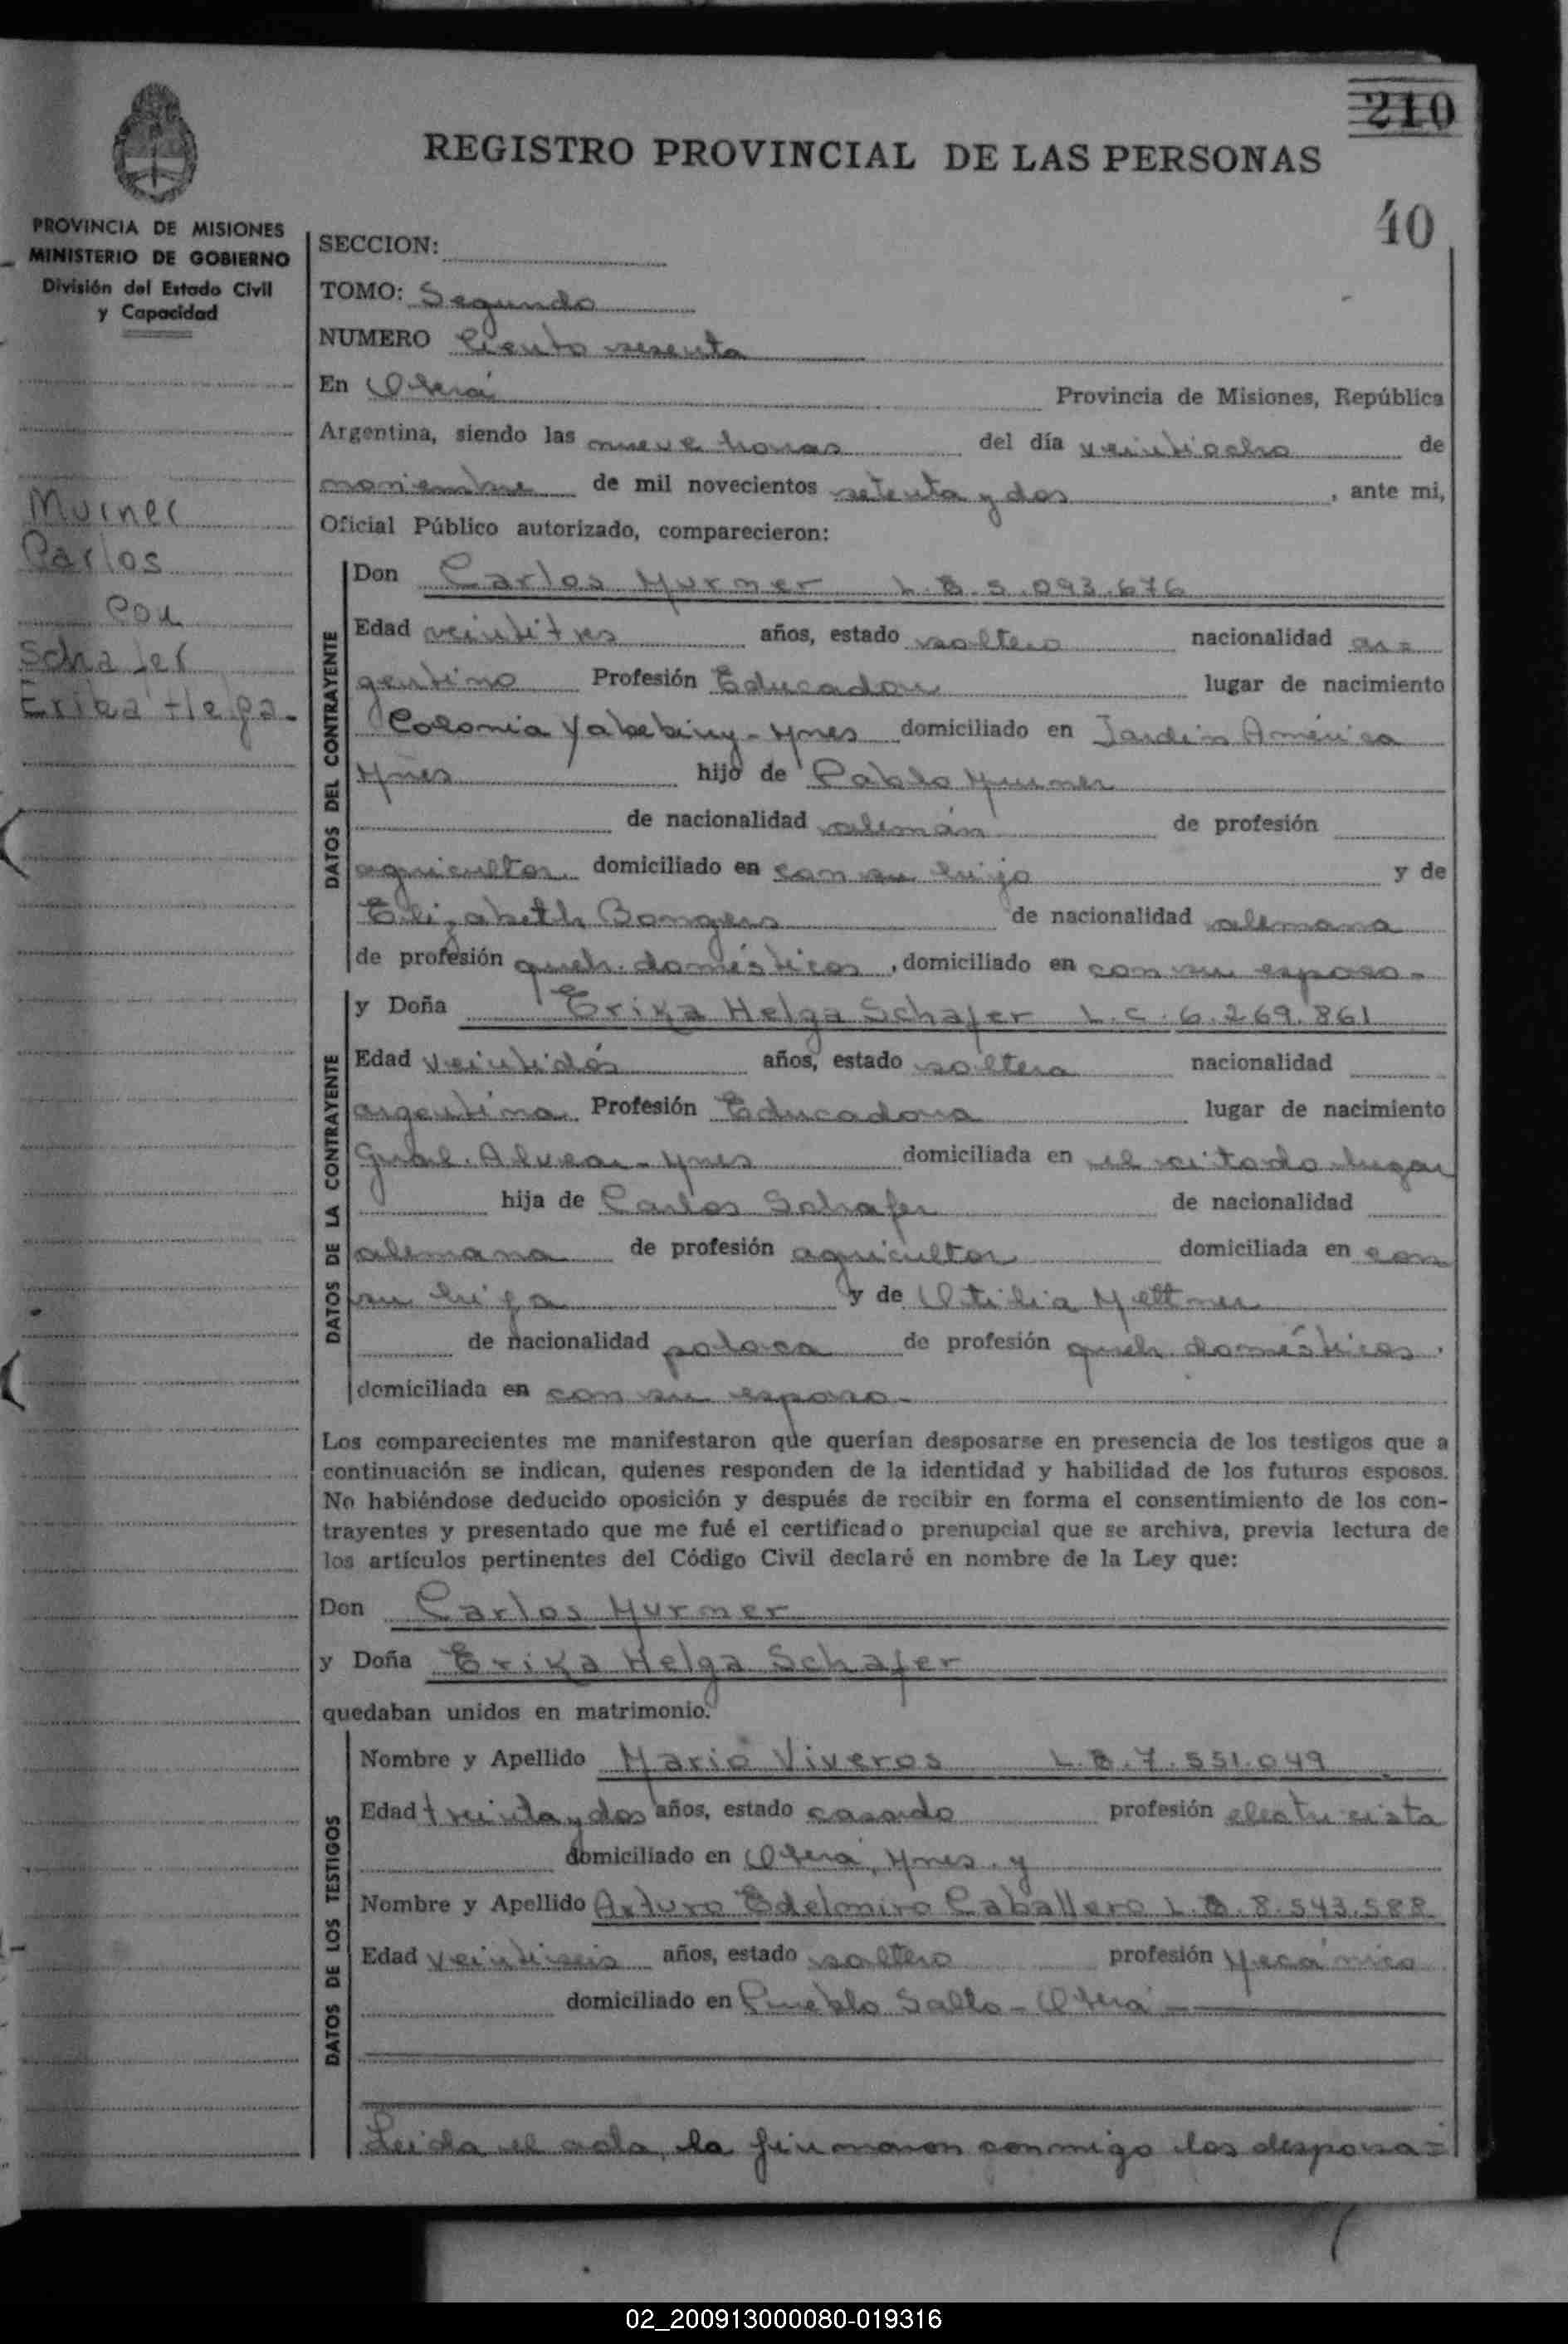 210
REGISTRO PROVINCIAL DE LAS PERSONAS
40
PROVINCIA DE MISIONES
MINISTERIO DE GOBIERNO
División del Estado Civil
y Capacidad
Murner
Carlos
con
Schafer
Erika Helga.
SECCION:
TOMO: Segundo
NUMERO Ciento sesenta
En Oberá Provincia de Misiones, República
Argentina, siendo las nueve horas del día veintiocho de
noviembre de mil novecientos setenta y dos, ante mi,
Oficial Público autorizado, comparecieron:
DATOS DEL CONTRAYENTE
Don Carlos Murmer L.E. 5.093.676
Edad veintitres años, estado soltero nacionalidad ar=
gentino Profesión Educador lugar de nacimiento
Colonia Yabebiry-Mnes domiciliado en Jardín América
Mnes hijo de Pablo Murmer
de nacionalidad alemán de profesión
agricultor domiciliado en con su hijo y de
Elizabeth Bongers de nacionalidad alemana
de profesión queh. domésticos, domiciliado en con su esposo-
DATOS DE LA CONTRAYENTE
y Doña Erika Helga Schafer L.C. 6.269.861
Edad veintidós años, estado soltera nacionalidad
argentina Profesión Educadora lugar de nacimiento
Gral. Alvear-Mnes domiciliada en el citado lugar
hija de Carlos Schafer de nacionalidad
alemana de profesión agricultor domiciliada en con
su hija y de Otilia
de nacionalidad polaca de profesión queh. domésticos,
domiciliada en con su esposo-
Los comparecientes me manifestaron que querían desposarse en presencia de los testigos que a
continuación se indican, quienes responden de la identidad y habilidad de los futuros esposos.
No habiéndose deducido oposición y después de recibir en forma el consentimiento de los con-
trayentes y presentado que me fué el certificado prenupcial que se archiva, previa lectura de
los artículos pertinentes del Código Civil declaré en nombre de la Ley que:
Don Carlos Murmer
y Doña Erika Helga Schafer
quedaban unidos en matrimonio.
DATOS DE LOS TESTIGOS
Nombre y Apellido Mario Viveros L.E. 7.551.049
Edad treinta y dos años, estado casado profesión electricista
domiciliado en Oberá, Mnes. y
Nombre y Apellido Arturo Edelmiro Caballero L.E. 8.543.588
Edad veintiseis años, estado soltero profesión Mecánico
domiciliado en Pueblo Salto - Oberá -
Leida el acta, la firmaron conmigo los desposa=
02_200913000080-019316